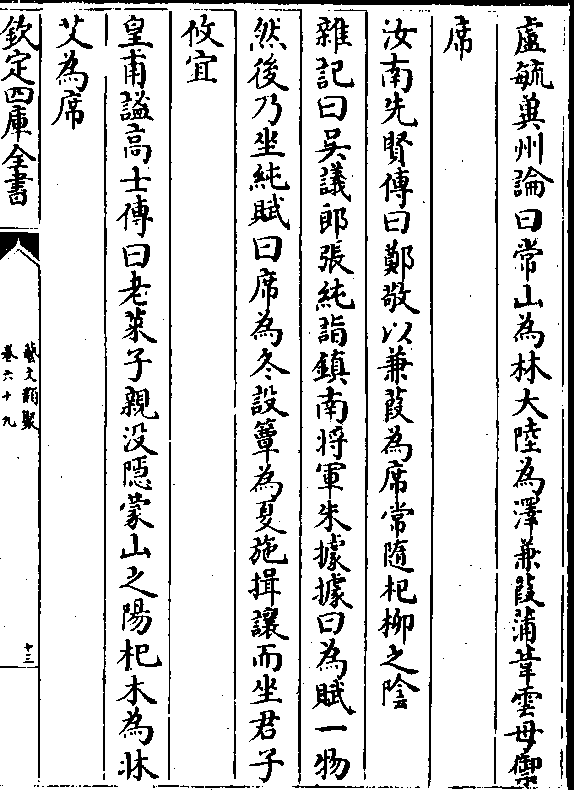 盧毓冀州論曰常山為林大陸為澤蒹葭蒲葦雲母禦
席
汝南先賢傳曰鄭敬以蒹葭為席常隨杞柳之陰
雜記曰吳議郎張純詣鎮南将軍朱據據曰為賦一物
然後乃坐純賦曰席為冬設簟為夏施揖讓而坐君子
攸宜
皇甫謐高士傳曰老萊子親没隱蒙山之陽杞木為牀
艾為席
欽定四庫全書
藝文類聚
卷六十九
十三